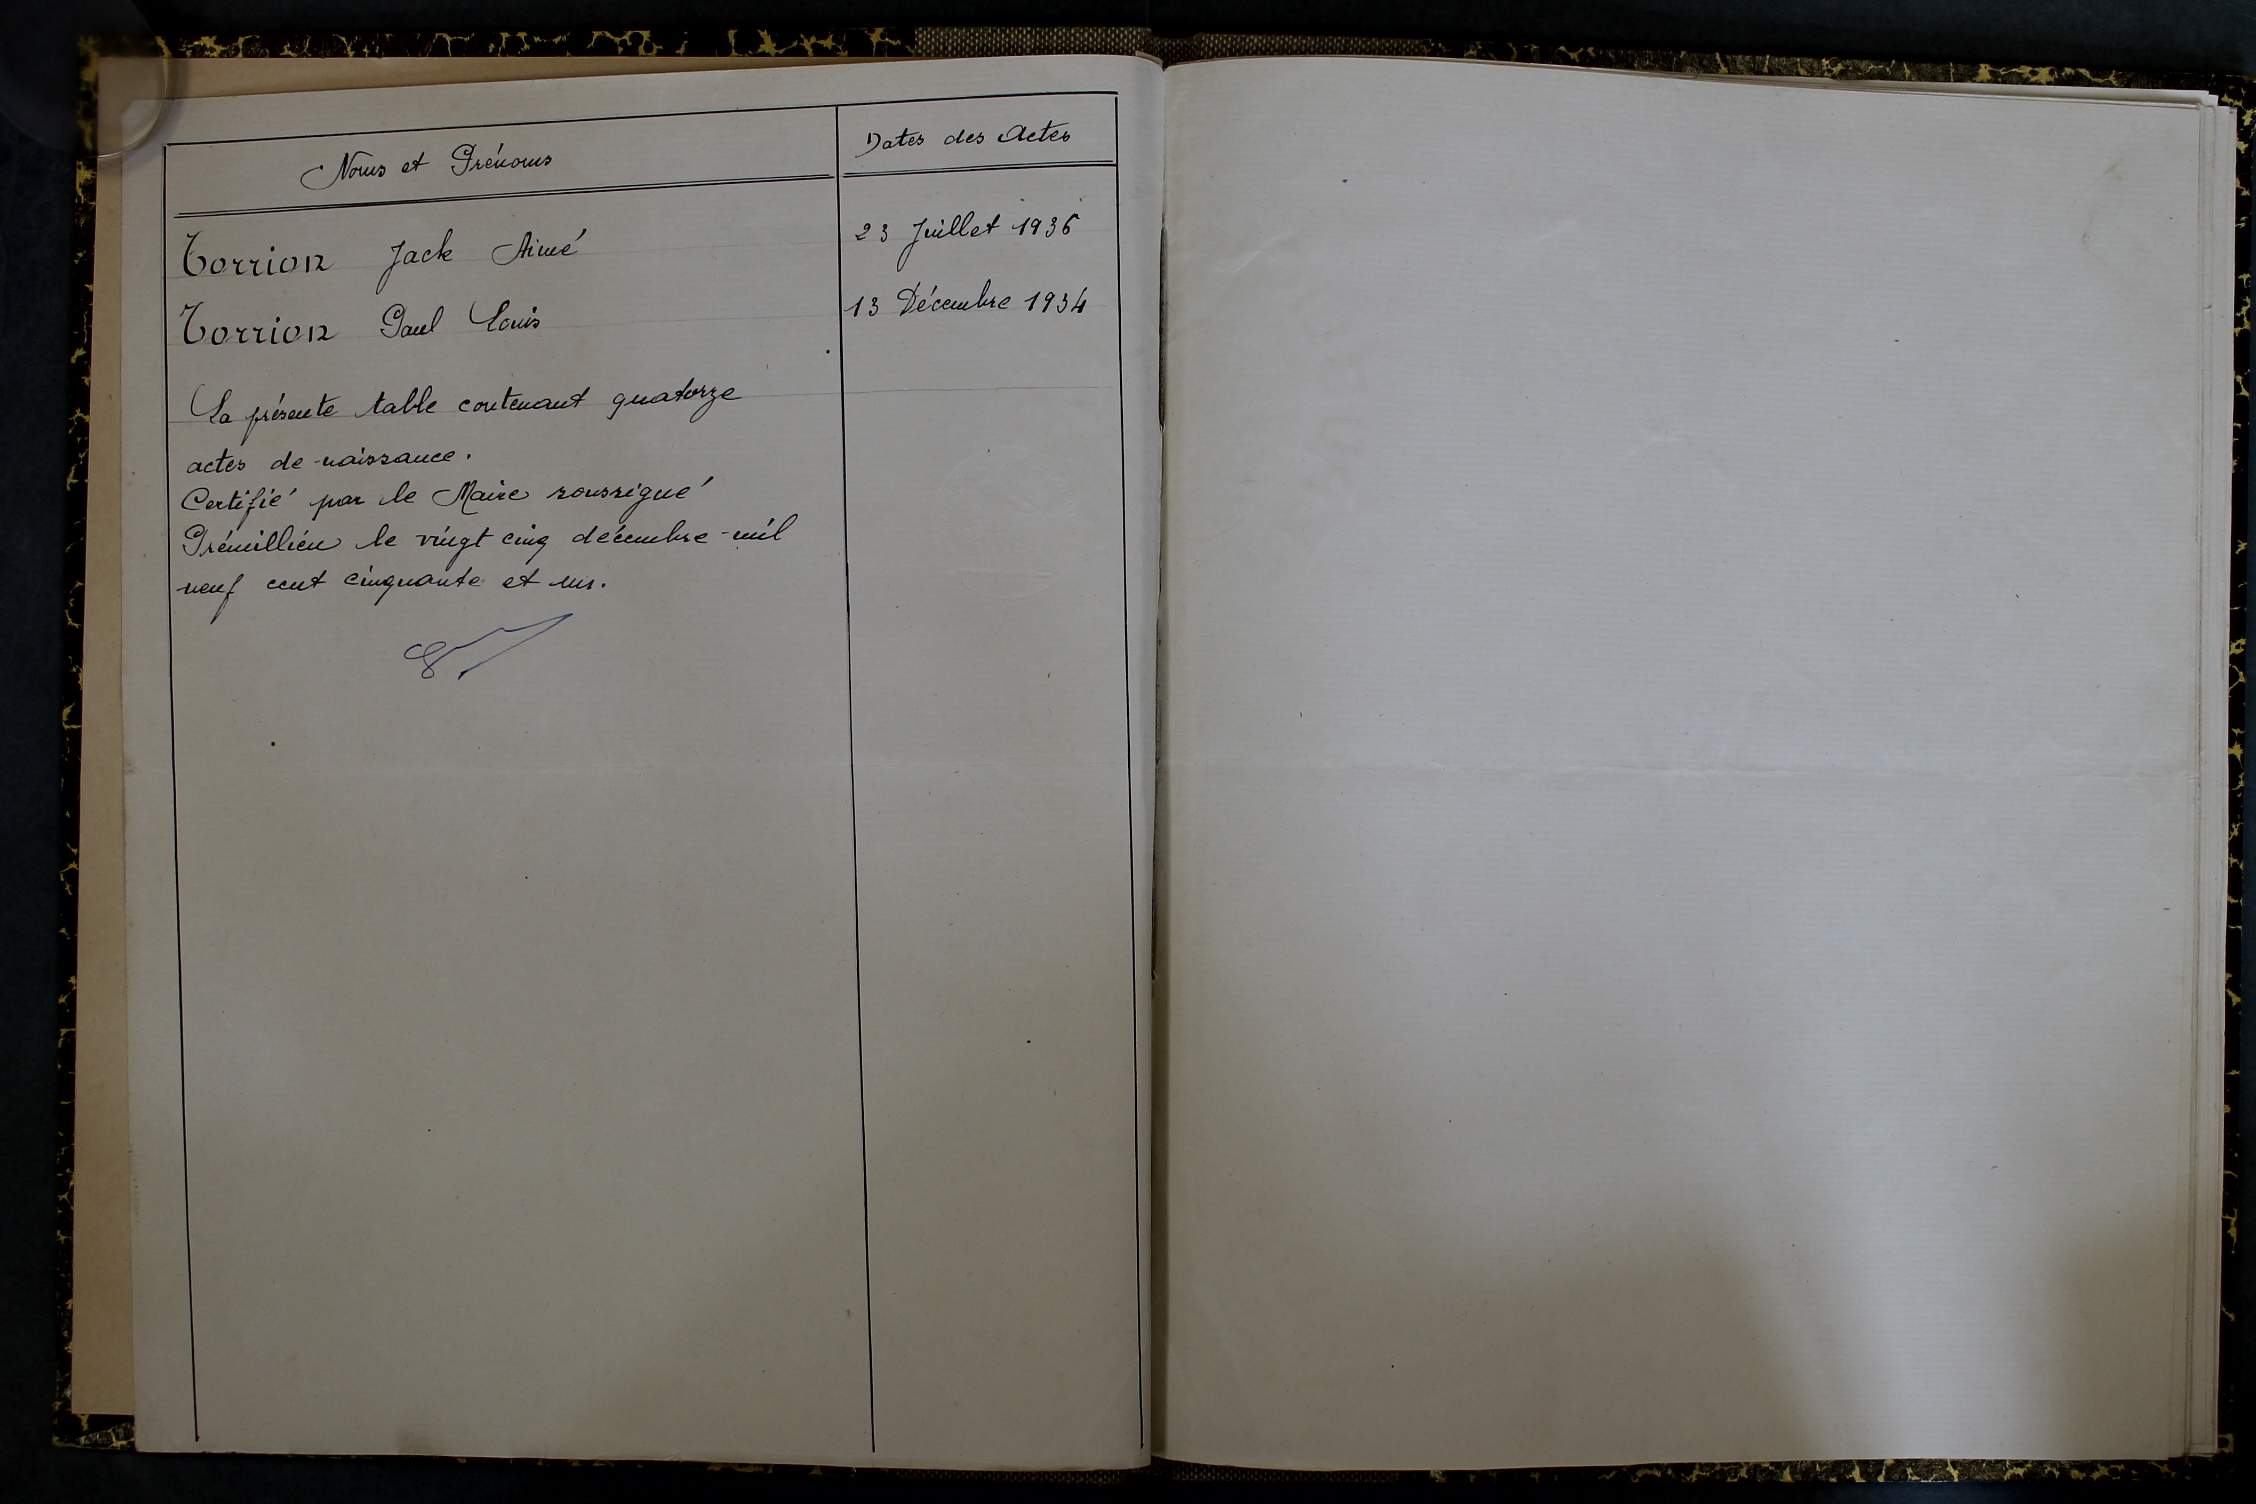 Noms et Prénoms
Dates des Actes
Torrion Jack Aimé
23 Juillet 1936
Torrion Paul Louis
13 Décembre 1934
La présente table contenant quatorze
actes de naissance.
Certifié par le Maire soussigné
Prémillieu le vingt cinq décembre mil
neuf cent cinquante et un.